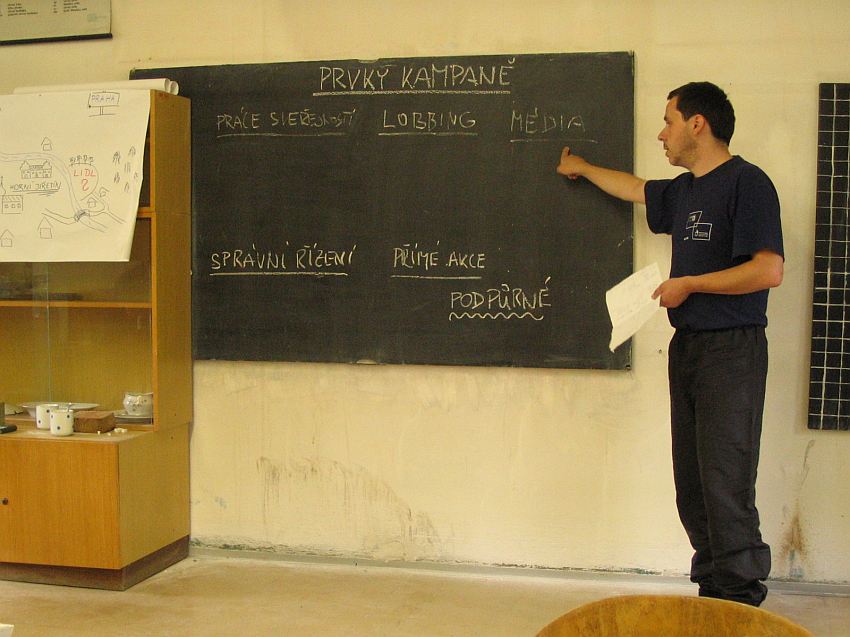 PRVKY KAMPANĚ
PRÁCE S VEŘEJNOSTÍ
LOBBING
MÉDIA
SPRÁVNÍ ŘÍZENÍ
PŘÍMÉ AKCE
PODPŮRNÉ
PRAHA
HORNÍ JIŘETÍN
LIDL
?